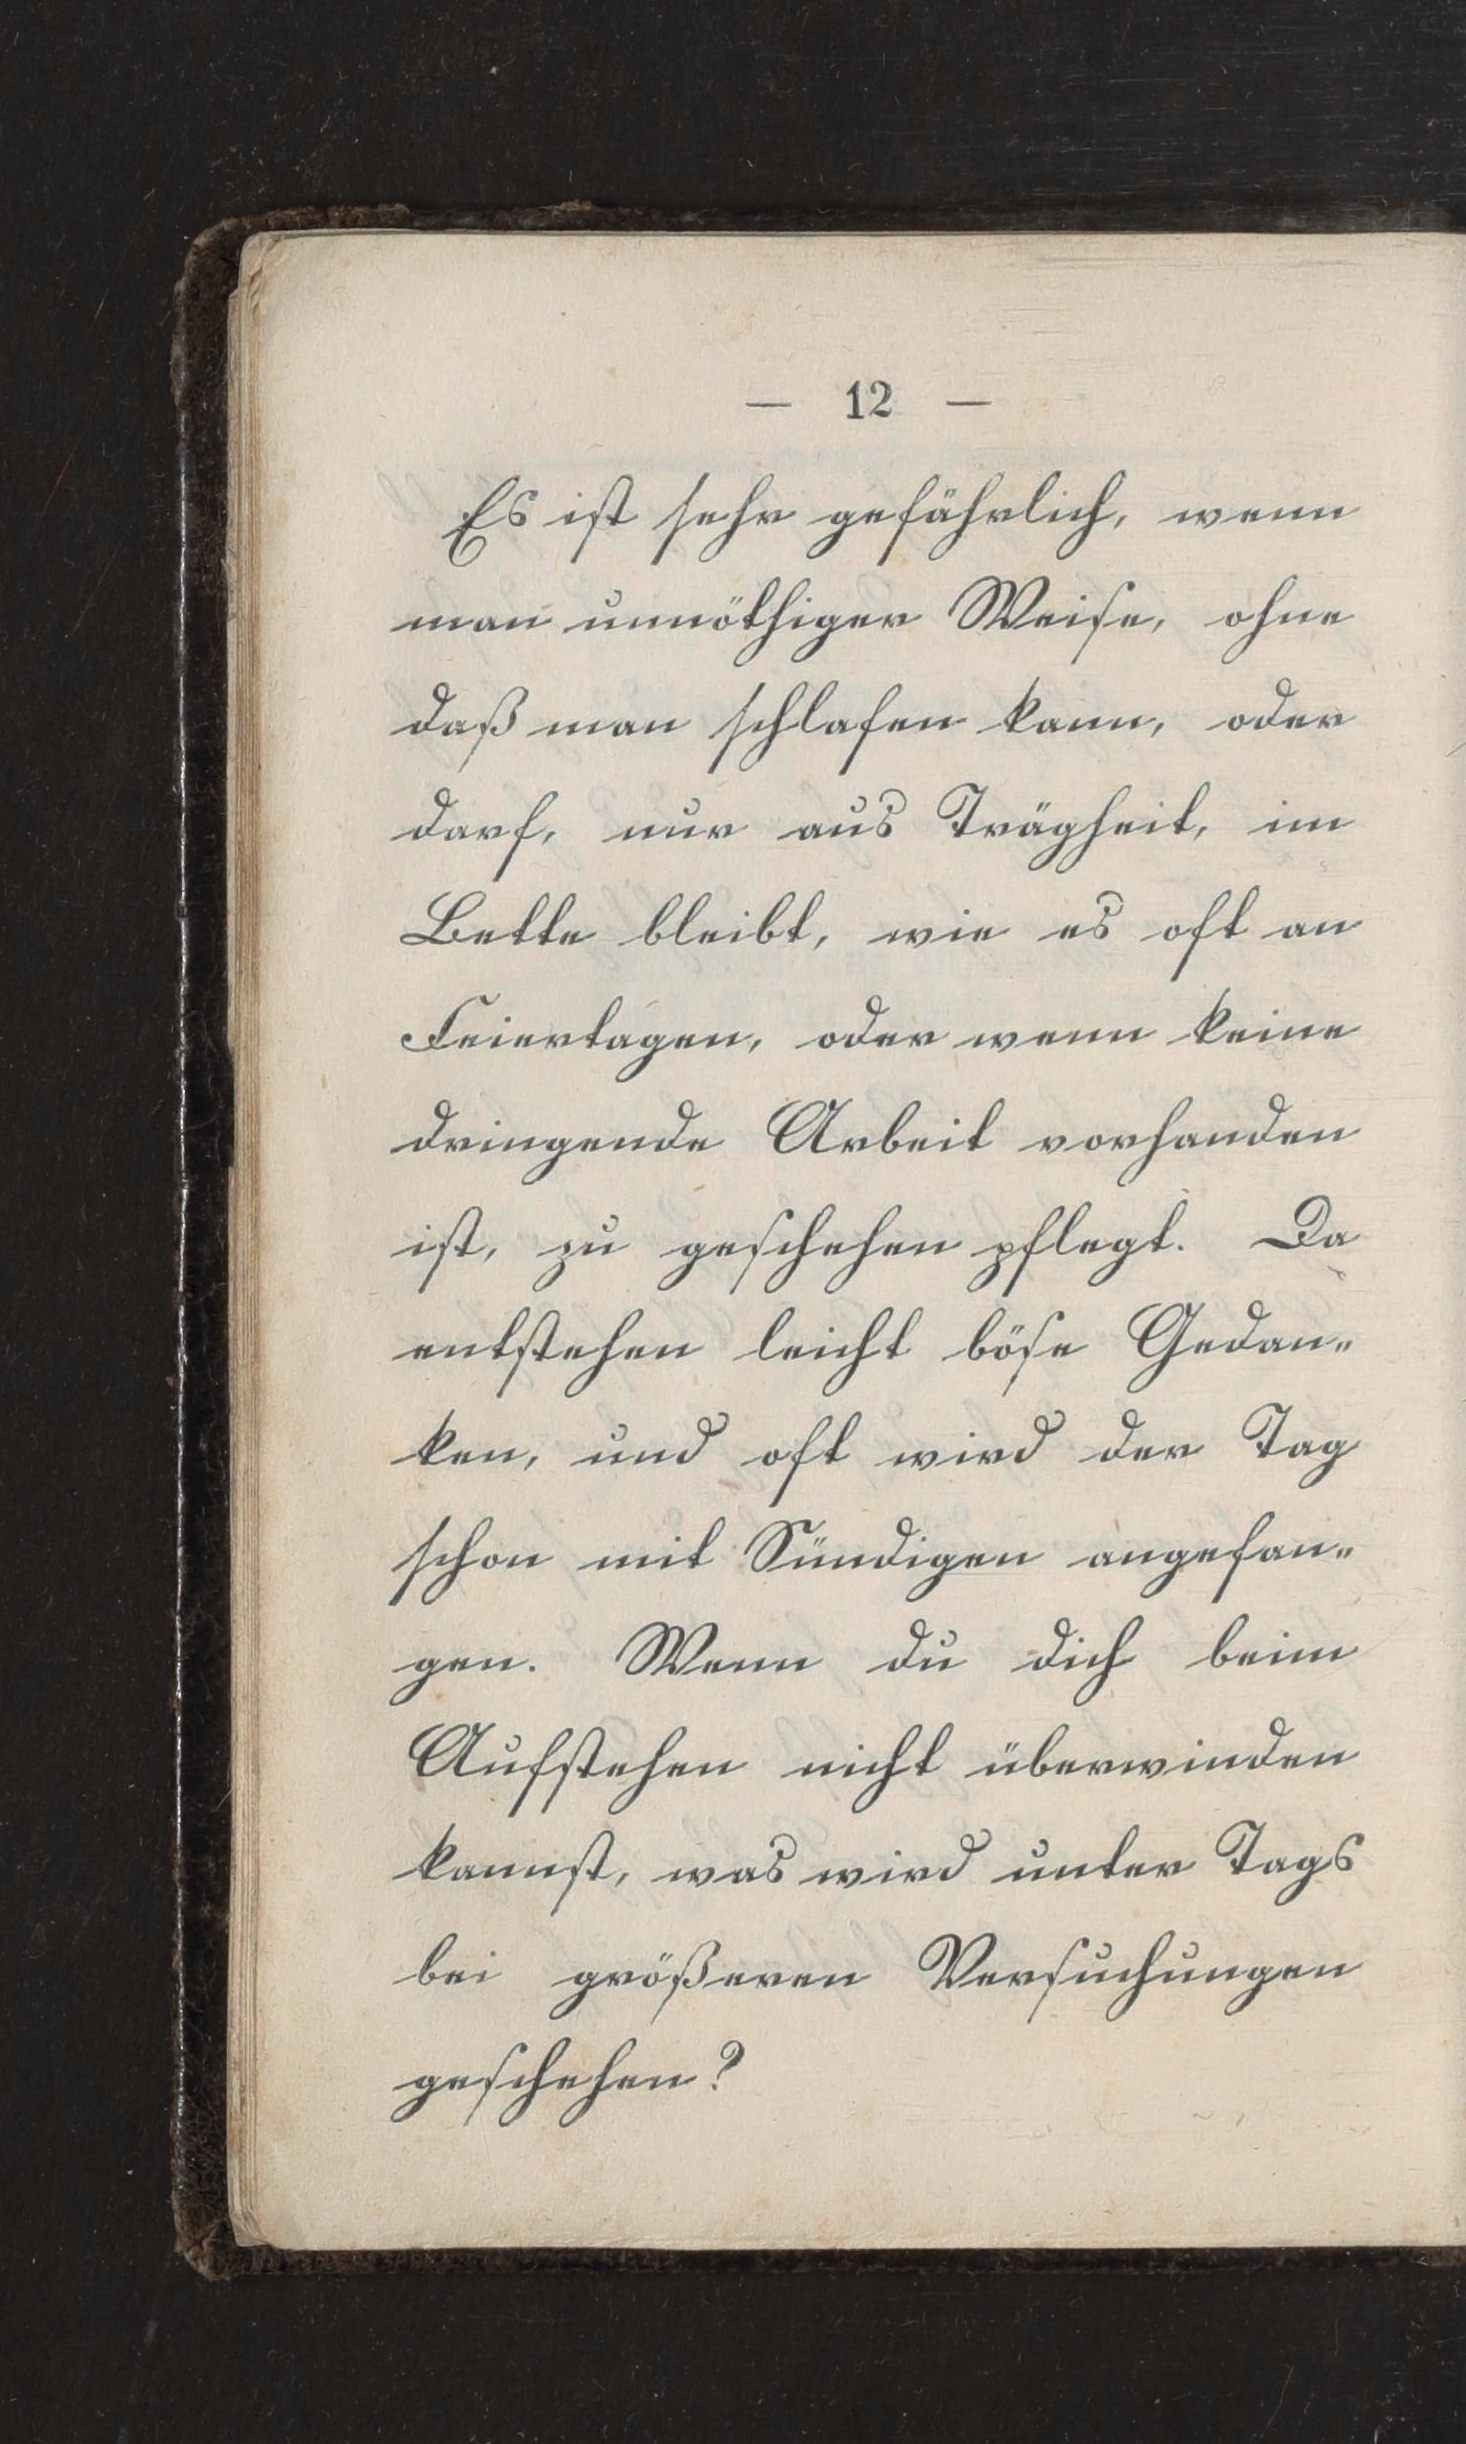 — 12 —
Es ist sehr gefährlich, wenn
man unnöthiger Weise, ohne
daß man schlafen kann, oder
darf, nur aus Trägheit, im
Bette bleibt, wie es oft an
Feiertagen, oder wenn keine
dringende Arbeit vorhanden
ist, zu geschehen pflegt. Da
entstehen leicht böse Gedan⸗
ken, und oft wird der Tag
schon mit Sündigen angefan⸗
gen. Wenn du dich beim
Aufstehen nicht überwinden
kannst, was wird unter Tags
bei größeren Versuchungen
geschehen?